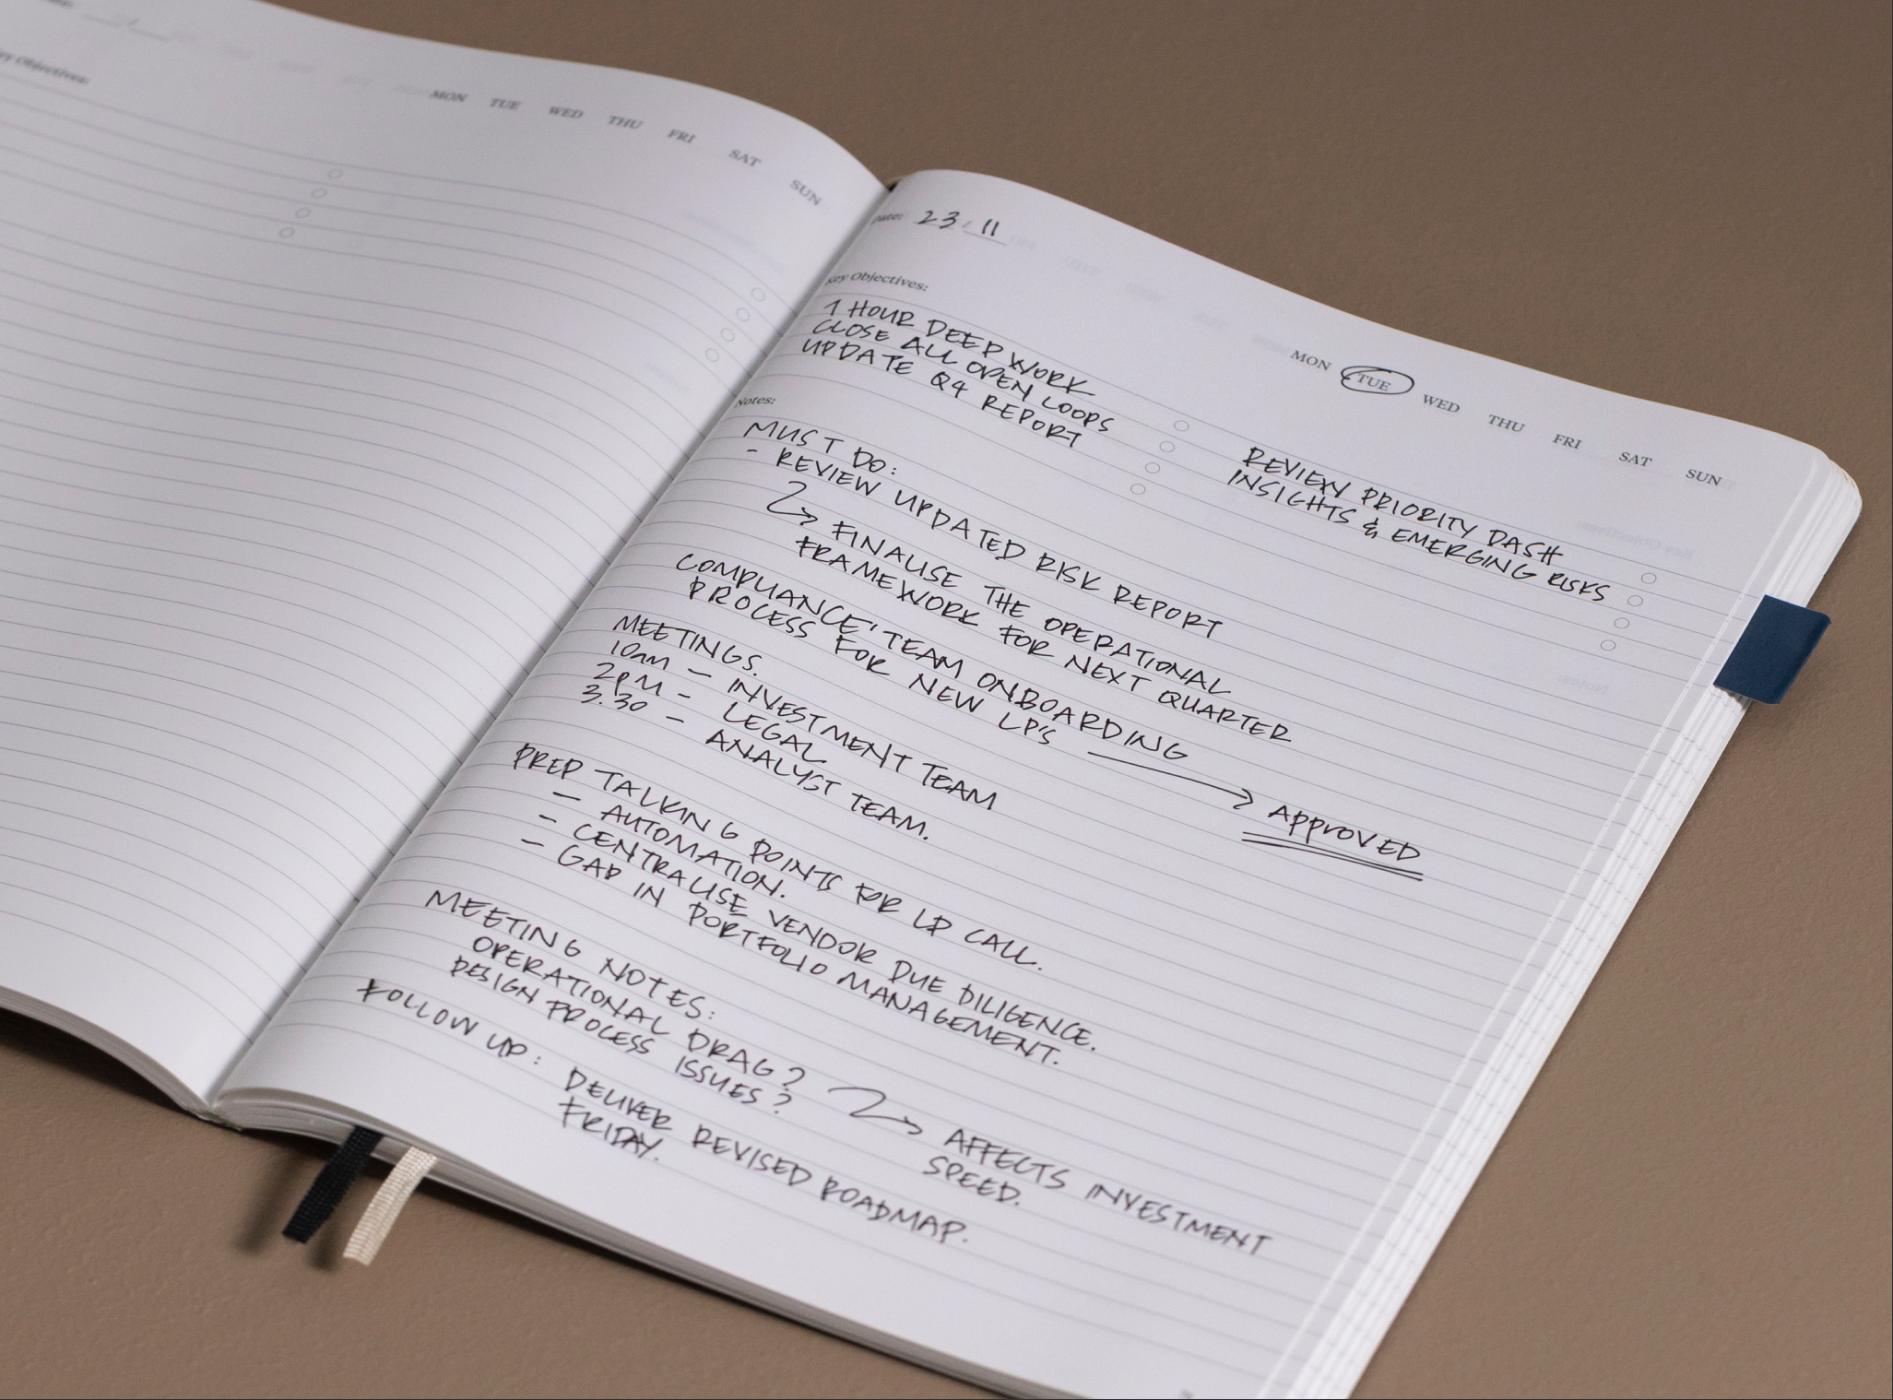 Key Objectives:
MON TUE WED THU FRI SAT SUN
Date: 23 / 11
MON TUE WED THU FRI SAT SUN
Key Objectives:
1 HOUR DEEP WORK
CLOSE ALL OPEN LOOPS
UPDATE Q4 REPORT
REVIEW PRIORITY DASH
INSIGHTS & EMERGING RISKS
Notes:
MUST DO:
- REVIEW UPDATED RISK REPORT
FINALISE THE OPERATIONAL
FRAMEWORK FOR NEXT QUARTER
COMPLIANCE' TEAM ONBOARDING
PROCESS FOR NEW LP'S → APPROVED
MEETINGS.
10am - INVESTMENT TEAM
2PM - LEGAL
3.30 - ANALYST TEAM.
PREP TALKING POINTS FOR LP CALL.
- AUTOMATION.
- CENTRALISE VENDOR DUE DILIGENCE.
- GAP IN PORTFOLIO MANAGEMENT.
MEETING NOTES:
OPERATIONAL DRAG?
DESIGN PROCESS ISSUES? → AFFECTS INVESTMENT
SPEED.
FOLLOW UP: DELIVER REVISED ROADMAP.
FRIDAY.